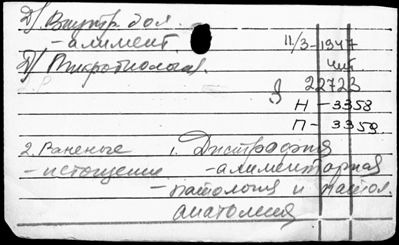 Д/ Внутр. бол.
- алимент.
11/3-1947
Д/ Микробиология.
Чит.
22723
Н - 3358
П - 3359
2. Ранение 1. Дистрофия
- истощение - алиментарная
- патология и патол.
анатомия